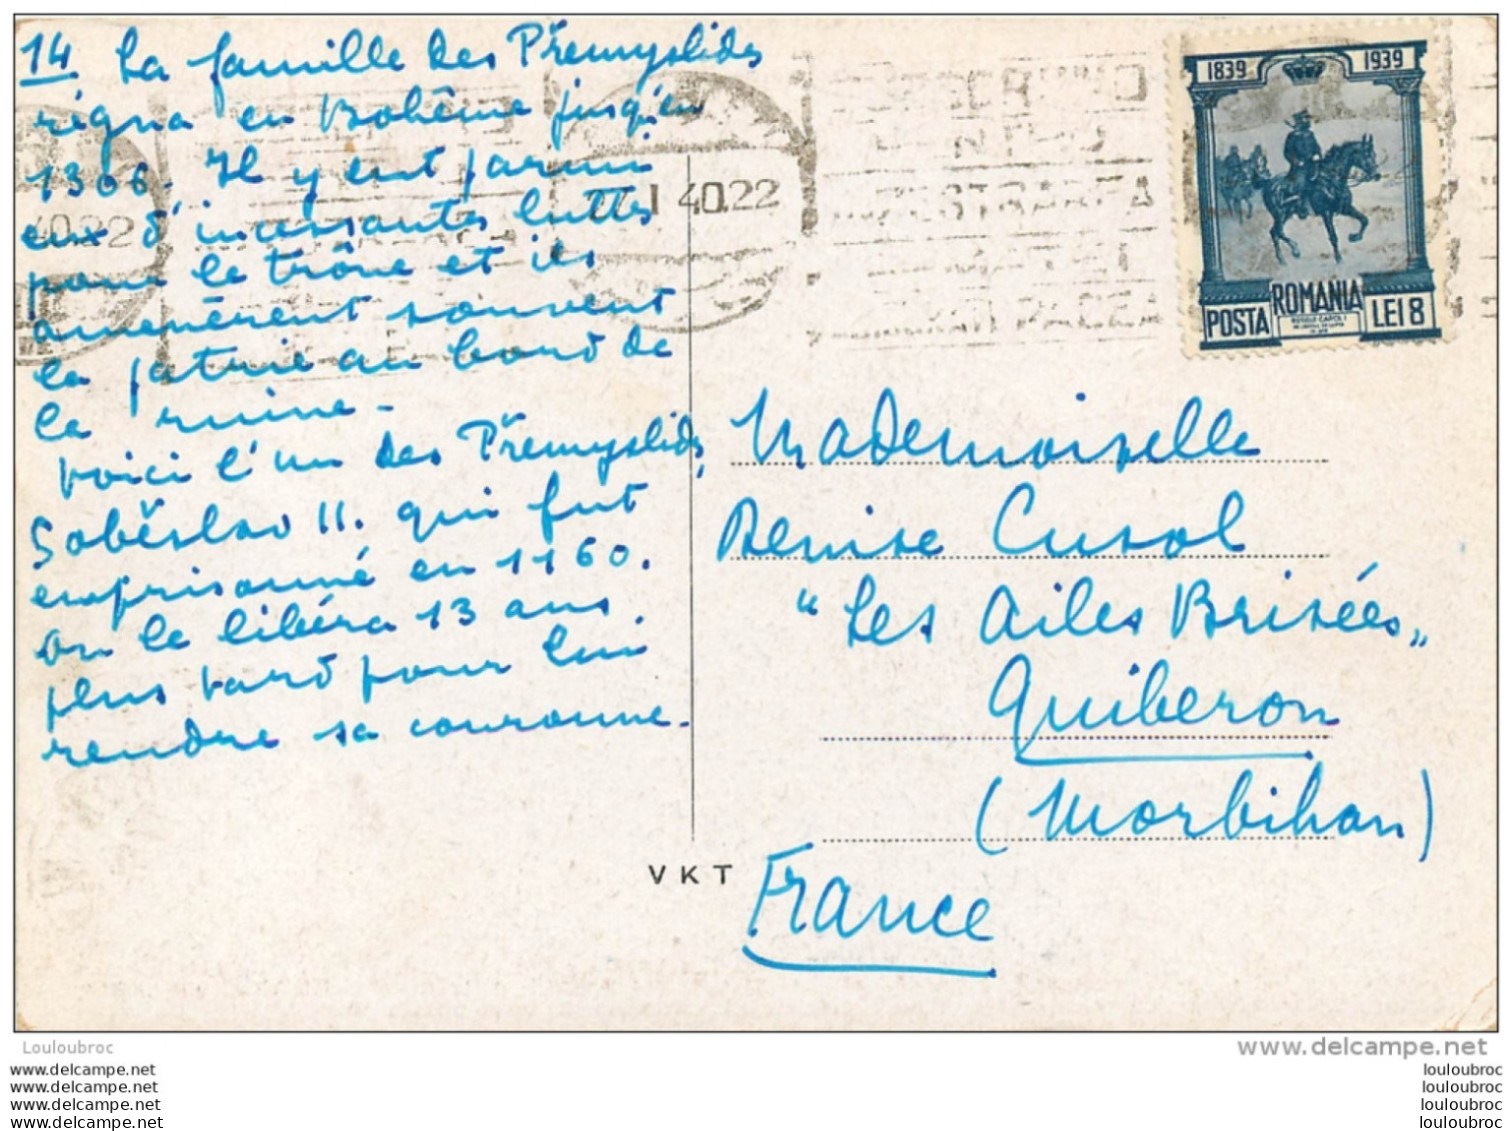 14 La famille des Přemyslides
régna en Bohême jusqu'en
1306. Il y eut parmi
eux d'incessantes luttes
pour le trône et ils
amenèrent souvent
la patrie au bord de
la ruine -
Voici l'un des Přemyslides,
Soběslav II. qui fut
emprisonné en 1160.
On le libéra 13 ans
plus tard pour lui
rendre sa couronne.
40.22
I 40.22
1839 1939
POSTA ROMANIA LEI 8
Mademoiselle
Denise Cusol
"Les Ailes Brisées"
Quiberon
(Morbihan)
France
VKT
Louloubroc
www.delcampe.net
www.delcampe.net
www.delcampe.net
www.delcampe.net
www.delcampe.net
louloubroc
louloubroc
louloubroc
louloubroc